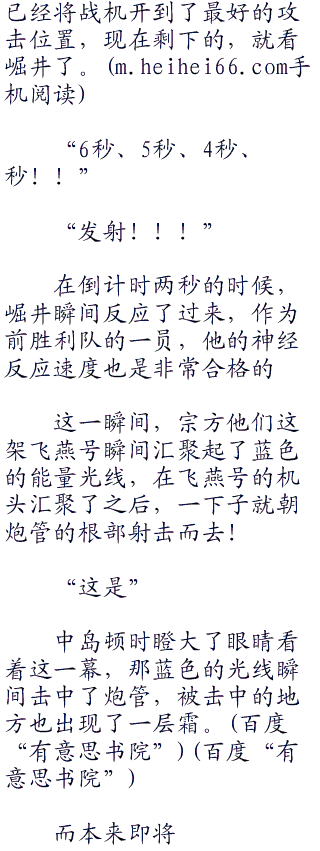 已经将战机开到了最好的攻
击位置，现在剩下的，就看
崛井了。(m.heihei66.com手
机阅读)
“6秒、5秒、4秒、
秒！！”
“发射！！！”
在倒计时两秒的时候，
崛井瞬间反应了过来，作为
前胜利队的一员，他的神经
反应速度也是非常合格的
这一瞬间，宗方他们这
架飞燕号瞬间汇聚起了蓝色
的能量光线，在飞燕号的机
头汇聚了之后，一下子就朝
炮管的根部射击而去！
“这是”
中岛顿时瞪大了眼睛看
着这一幕，那蓝色的光线瞬
间击中了炮管，被击中的地
方也出现了一层霜。(百度
“有意思书院”)(百度“有
意思书院”)
而本来即将